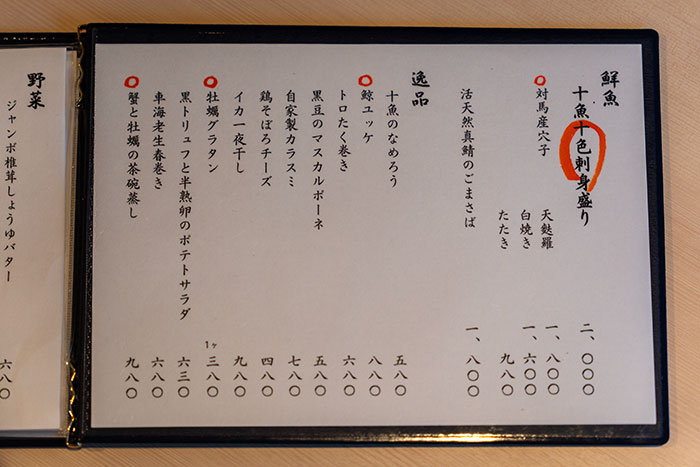 鮮魚
十魚十色刺身盛り 二、〇〇〇
対馬産穴子 天麩羅 一、八〇〇
白焼き 一、六〇〇
たたき 九八〇
活天然真鯖のごまさば 一、八〇〇
逸品
十魚のなめろう 五八〇
鯨ユッケ 八八〇
トロたく巻き 六八〇
黒豆のマスカルポーネ 五八〇
自家製カラスミ 七八〇
鶏そぼろチーズ 四八〇
イカ一夜干し 九八〇
牡蠣グラタン 1ヶ 三八〇
黒トリュフと半熟卵のポテトサラダ 六三〇
車海老生春巻き 六八〇
蟹と牡蠣の茶碗蒸し 九八〇
野菜
ジャンボ椎茸しょうゆバター 六八〇